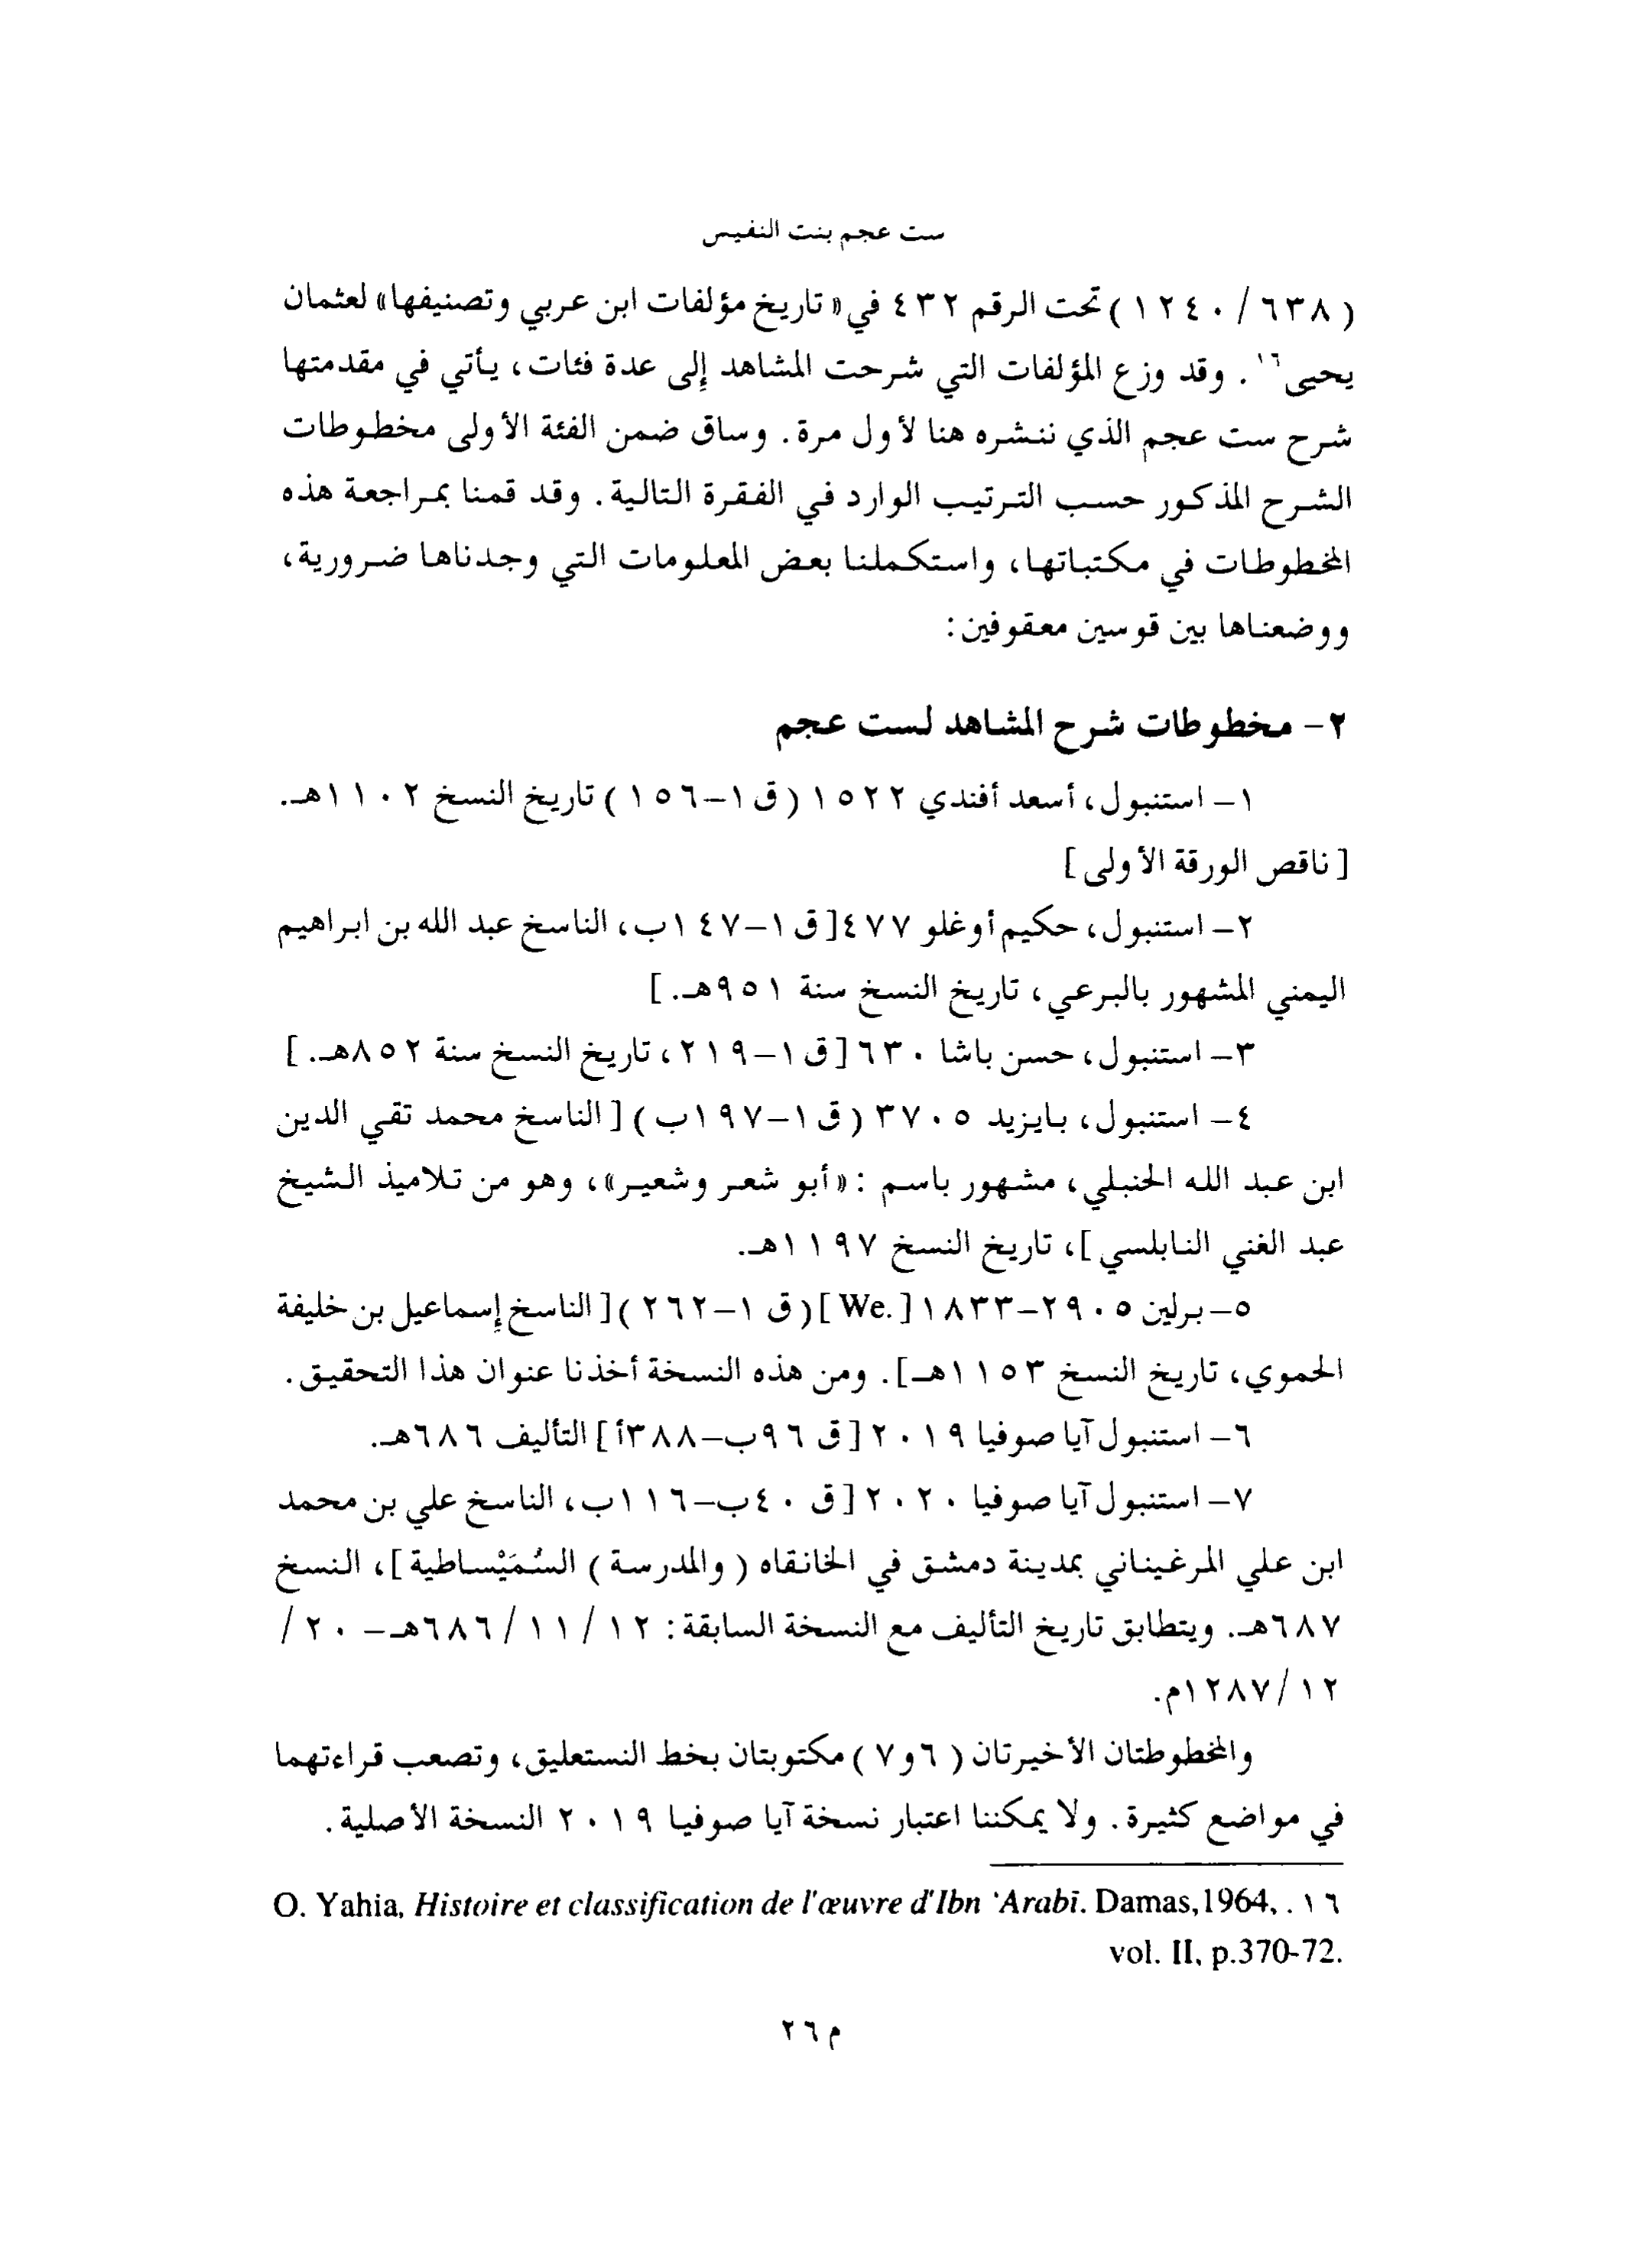 ست عجم بنت النفيس
(٦٣٨ / ١٢٤٠) تحت الرقم ٤٣٢ في «تاريخ مؤلفات ابن عربي وتصنيفها» لعثمان
يحيى١٦. وقد وزع المؤلفات التي شرحت المشاهد إلى عدة فئات، يأتي في مقدمتها
شرح ست عجم الذي ننشره هنا لأول مرة. وساق ضمن الفئة الأولى مخطوطات
الشرح المذكور حسب الترتيب الوارد في الفقرة التالية. وقد قمنا بمراجعة هذه
المخطوطات في مكتباتها، واستكملنا بعض المعلومات التي وجدناها ضرورية،
ووضعناها بين قوسين معقوفين:
٢- مخطوطات شرح المشاهد لست عجم
١- استنبول، أسعد أفندي ١٥٢٢ (ق١-١٥٦) تاريخ النسخ ١١٠٢هـ.
[ناقص الورقة الأولى]
٢- استنبول، حكيم أوغلو ٤٧٧ [ق١-١٤٧ب، الناسخ عبد الله بن ابراهيم
اليمني المشهور بالبرعي، تاريخ النسخ سنة ٩٥١هـ.]
٣- استنبول، حسن باشا ٦٣٠ [ق١-٢١٩، تاريخ النسخ سنة ٨٥٢هـ.]
٤- استنبول، بايزيد ٣٧٠٥ (ق١-١٩٧ب) [الناسخ محمد تقي الدين
ابن عبد الله الحنبلي، مشهور باسم: «أبو شعر وشعير»، وهو من تلاميذ الشيخ
عبد الغني النابلسي]، تاريخ النسخ ١١٩٧هـ.
٥- برلين ٢٩٠٥-١٨٣٣ [We.] (ق ١-٢٦٢) [الناسخ إسماعيل بن خليفة
الحموي، تاريخ النسخ ١١٥٣هـ]. ومن هذه النسخة أخذنا عنوان هذا التحقيق.
٦- استنبول آيا صوفيا ٢٠١٩ [ق ٩٦ب-٣٨٨أ] التأليف ٦٨٦هـ.
٧- استنبول آيا صوفيا ٢٠٢٠ [ق ٤٠ب-١١٦ب، الناسخ علي بن محمد
ابن علي المرغيناني بمدينة دمشق في الخانقاه (والمدرسة) السُمَيْساطية]، النسخ
٦٨٧هـ. ويتطابق تاريخ التأليف مع النسخة السابقة: ١٢/ ١١/ ٦٨٦هـ- ٢٠/
١٢/ ١٢٨٧م.
والمخطوطتان الأخيرتان (٦ و٧) مكتوبتان بخط النستعليق، وتصعب قراءتهما
في مواضع كثيرة. ولا يمكننا اعتبار نسخة آيا صوفيا ٢٠١٩ النسخة الأصلية.
١٦. O. Yahia, Histoire et classification de l'œuvre d'Ibn 'Arabī. Damas,1964,
vol. II, p.370-72.
م٢٦